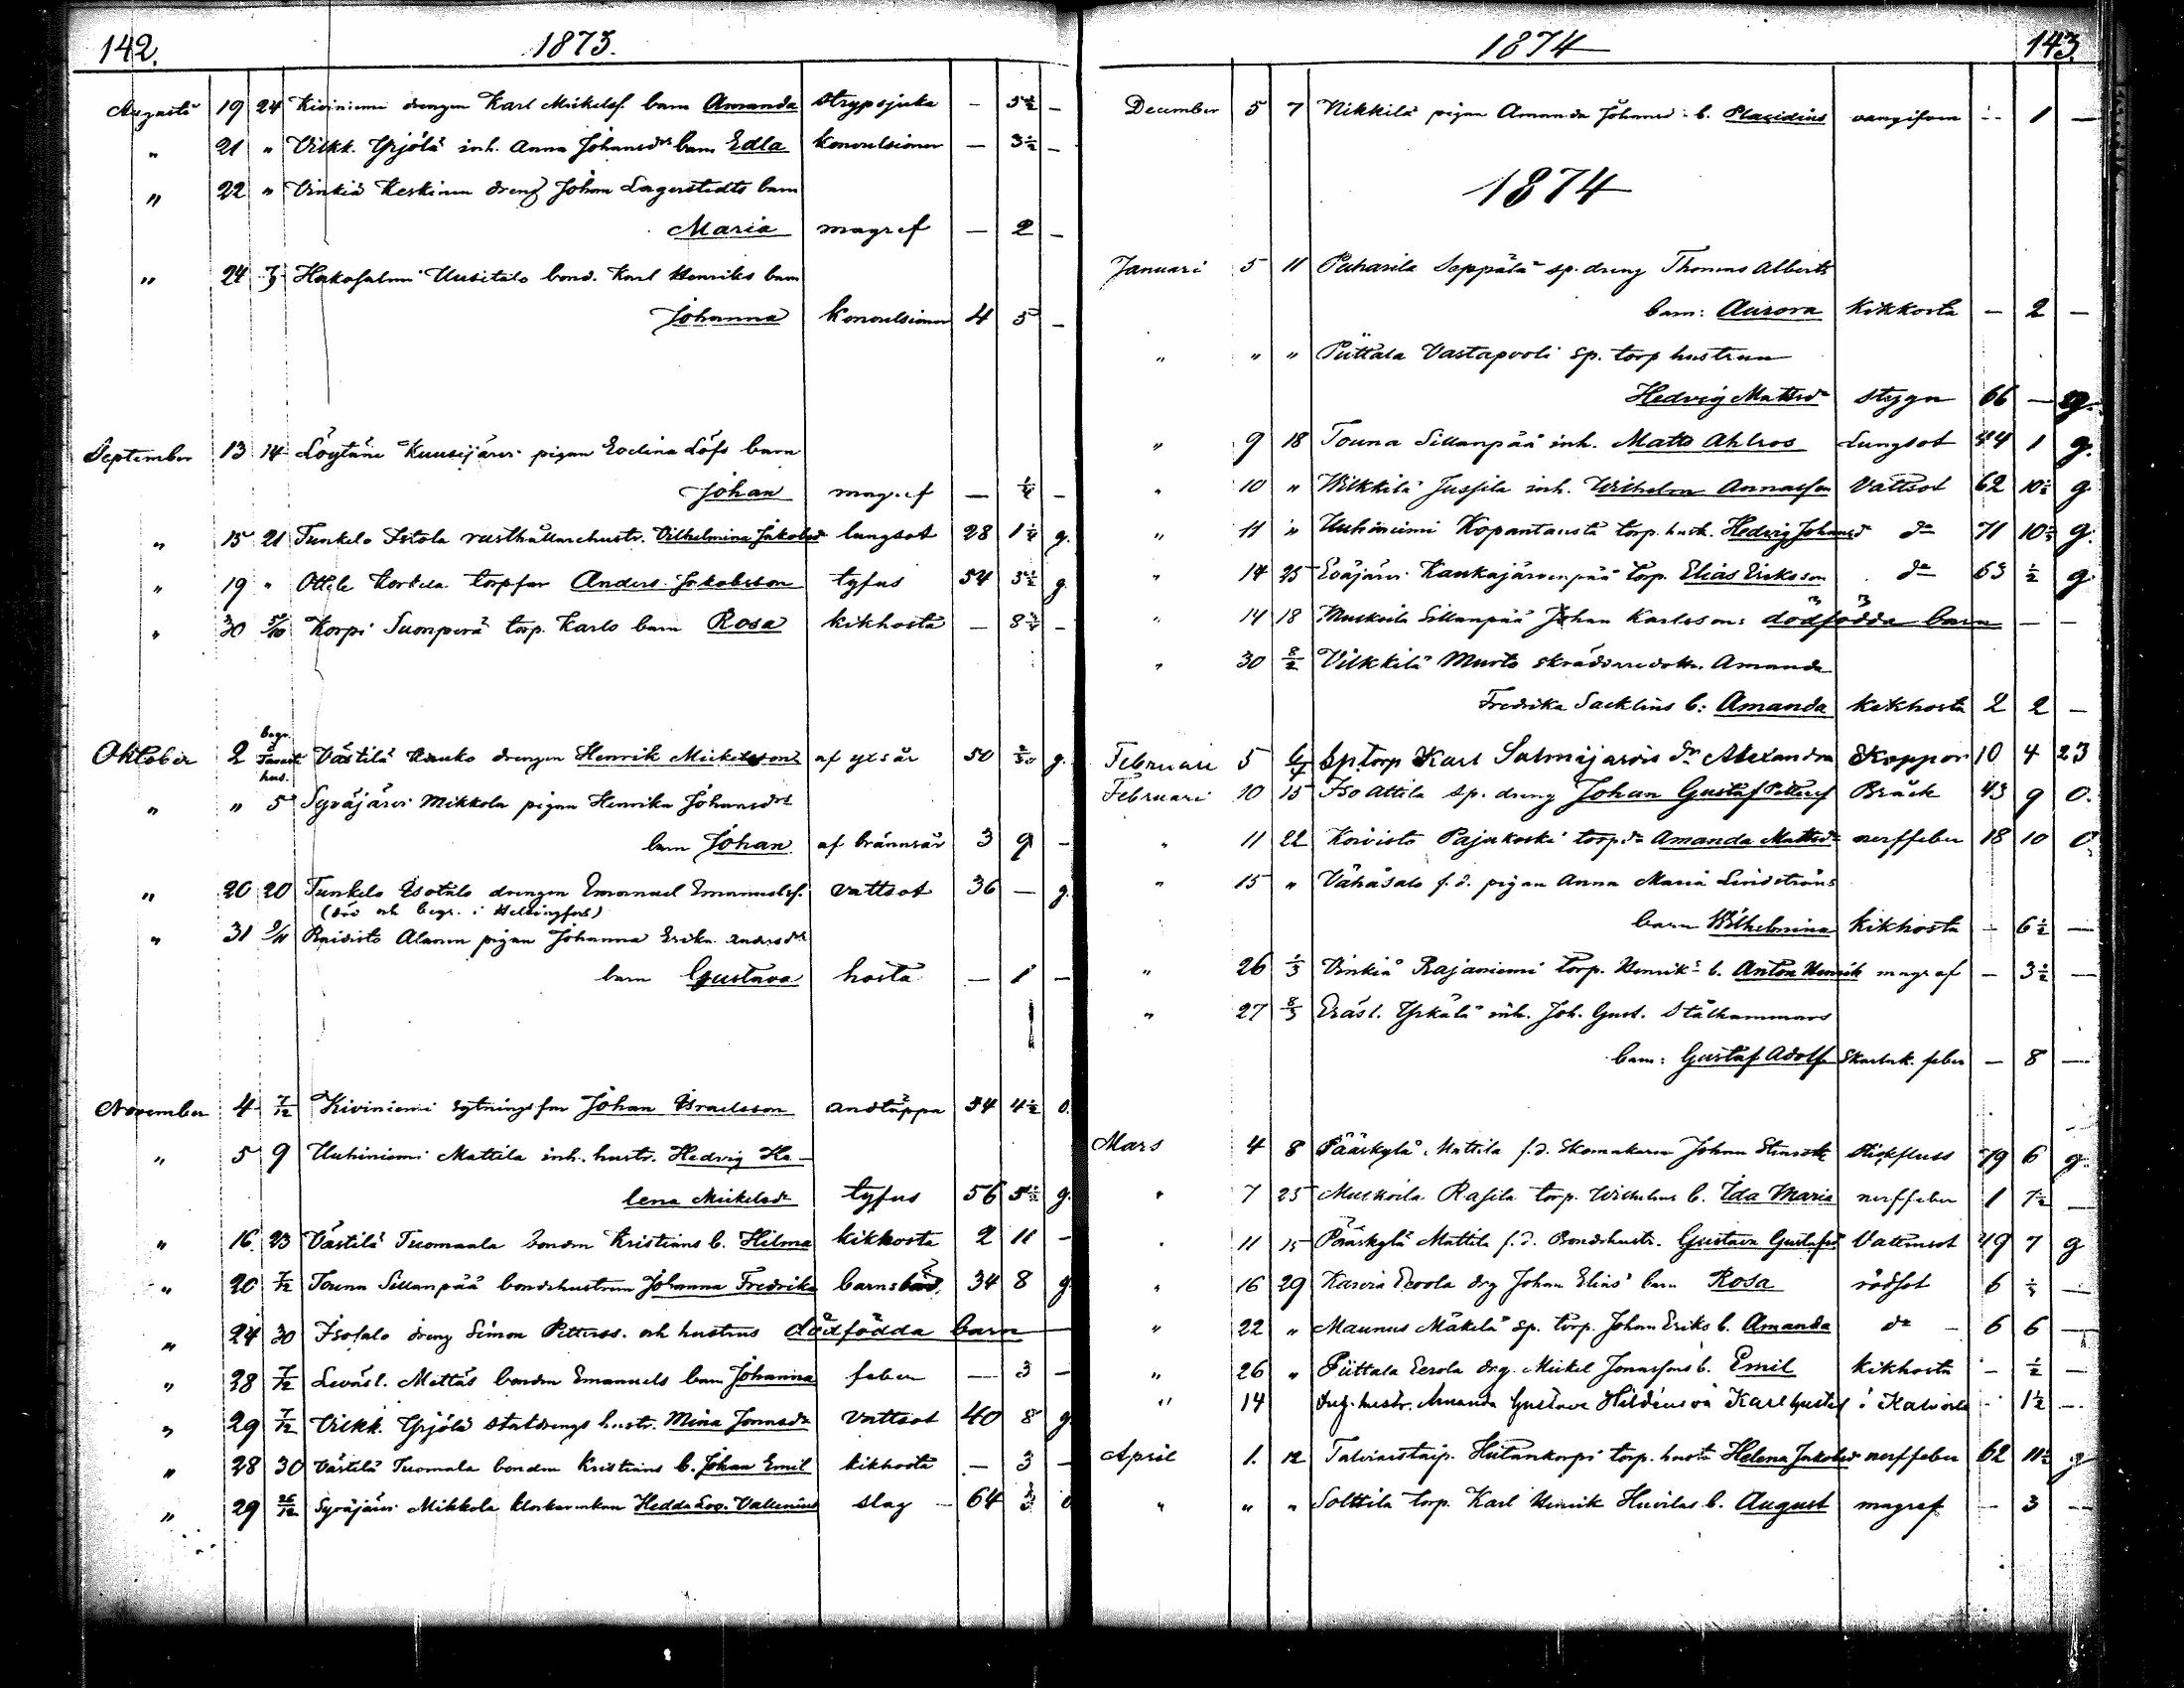 142. 1873.
Augusti 19 24 Kiviniemi drengen Karl Mickelss. barn Amanda strypsjuka — 5½ —
" 21 " Vilkk. Yrjölä inh. Anna Johansdrs barn Edla konvulsioner — 3½ —
" 22 " Vinkiä Keskinen dreng Johan Lagerstedts barn
Maria magref — 2 —
" 24 Hakosalmi Uusitalo bond. Karl Henriks barn
Johanna konvulsioner 4 5 —
September 13 14 Löytäne Kuusijärvi pigan Evelina Löfs barn
Johan magref — ¼ —
" 15 21 Tunkelo Isotalo rusthållarehustr. Vilhelmina Jakobsdr lungsot 28 1¼ g.
" 19 " Ottila Korkela torpfar Anders Jakobsson tyfus 54 5½ g.
" 30 5/10 Korpi Suonperä torp. Karls barn Rosa kikhosta — 8¾ —
begr. i Tavast hus.
Oktober 2 Västilä drengen Henrik Mickelsson af yxsår 50 g.
" " 5 Syväjärvi Mikkola pigan Henrika Johansdrs
barn Johan af brännsår 3 9 —
" 20 20 Tunkelo Isotalo drengen Emanuel Emanuelss. vattsot 36 — g.
(död och begr. i Helsingfors)
" 31 2/11 Raivisto Alanen pigan Johanna Erika Andersdrs
barn Gustava hosta — 1 —
November 4 7/12 Kiviniemi sytningsfar Johan Israelsson andtäppa 54 4½ o.
" 5 9 Uuhiniemi Mattila inh. hustr. Hedvig He-
lena Mickelsdr tyfus 56 5½ g.
" 16 23 Västilä Tuomaala bonden Kristians b. Hilma kikhosta 2 11 —
" 20 7/12 Touna Sillanpää bondehustrun Johanna Fredrika barnsbörd 34 8 g
" 24 30 Isosalo dreng Simon Petterss. och hustrus dödfödda barn —
" 28 7/12 Leväsl. Mattas bonden Emanuels barn Johanna feber — 3 —
" 29 7/12 Vilkk. Yrjölä statdrengs hustr. Mina Jonasdr vattsot 40 8 g
" 28 30 Västilä Tuomala bonden Kristians b. Johan Emil kikhosta — 3 —
" 29 26/12 Syväjärvi Mikkola klockarenkan Hedda Lov. Vallenius slag 64
1874 143.
December 5 7 Nikkilä pigan Amanda Johansd:s b. Placidius — 1 —
1874
Januari 5 11 Paharila Seppälä sp. dreng Thomas Alberts
barn: Aurora kikhosta — 2 —
" " " Püttala Vastapuoli sp. torp hustrun
Hedvig Mattsdr stygn 66 — g.
" 9 18 Touna Sillanpää inh. Matts Ahlros Lungsot 44 1 g.
" 10 " Wilkkilä Jussila inh. Wilhelm Annasson Vattsot 62 10½ g
" 11 " Uuhiniemi Kopantausta torp. hust. Hedvig Johansd do 71 10½ g.
" 14 25 Eväjärvi Kaukajärvenpää torp. Elias Eriksson do 63 ½ g.
" 14 18 Muskoila Sillanpää Johan Karlsson: dödfödda barn — —
" 30 8/2 Vilkkilä Murto skräddaredottr. Amanda
Fredrika Sacklins b: Amanda kikhosta 2 2 —
Februari 5 Sp.torp Karl Salmijärvis dr Alexandra Koppor 10 4 23
Februari 10 15 Iso Attila sp. dreng Johan Gustaf Petterss Bråck 43 9 o.
" 11 22 Koivisto Pajukoski torp.dr Amanda Mattsdr nerffeber 18 10 o
" 15 " Vähäsalo f.d. pigan Anna Maria Lindströms
barn Wilhelmina kikhosta — 6½ —
" 26 1/3 Vinkiä Rajaniemi torp. Henriks b. Anton Henrik magref — 3½ —
" 27 8/3 Eräsl. Yrkälä inh. Joh. Gust. Stålhammars
barn: Gustaf Adolf Skarlak. feber — 8 —
Mars 4 8 Pääskylä Mattila f.d. Skomakaren Johan 79 6 g.
" 7 25 Muskoila Rasila torp. Wilhelms b. Ida Maria nerffeber 1 7½ —
" 11 15 Pääskylä Mattila f.d. Bondehustr. Gustava Gustafsd Vattensot 49 7 g
" 16 29 Karvia Eerola drg Johan Elias' barn Rosa rödsot 6 —
" 22 " Maunus Mäkelä sp. torp. Johan Eriks b. Amanda do — 6 6 —
" 26 " Püttala Eerola drg. Mickel Jonassons b. Emil kikhosta — ½ —
" 14 Drg. hustr. Amanda Gustava Karl Gustaf i Kalvola — 1½ —
April 1. 12 Hiitankorpi torp. hustr Helena Jakobsd nerffeber 62 11½ g
" " " Solttila torp. Karl Henrik b. August magref — 3 —